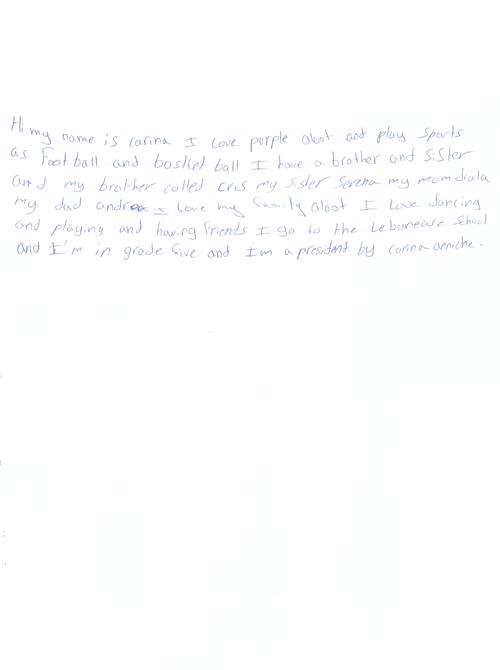 Hi my name is carina I Love purple aloot and play Sports
as Foot ball and basket ball I have a brother and SiSter
and my brother called cris my Sister Serena my mom diala
my dad andrea I Love my Family aloot I Love dancing
and playing and having Friends I go to the Lebanease School
and I'm in grade Five and Im a president by carina anniche.